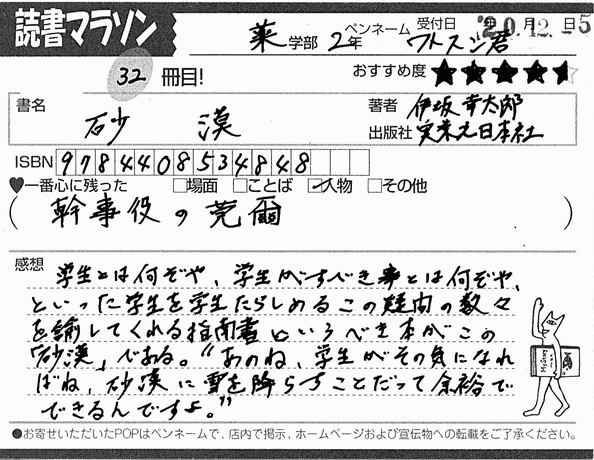 読書マラソン
薬学部 2年 ペンネーム ワトスン君 受付日 20.12.-5
年 月 日
32冊目!
おすすめ度 ★★★★
書名 砂漠
著者 伊坂幸太郎
出版社 実業之日本社
ISBN 9784408534848
♥一番心に残った □場面 □ことば ☑人物 □その他
(幹事役の莞爾)
感想 学生とは何ぞや、学生がすべき事とは何ぞや、
といった学生を学生たらしめるこの疑問の数々
を諭してくれる指南書というべき本がこの
「砂漠」である。“あのね、学生がその気になれ
ばね、砂漠に雪を降らすことだって余裕で
できるんですよ。”
Mystery
●お寄せいただいたPOPはペンネームで、店内で掲示、ホームページおよび宣伝物への転載をご了承ください。